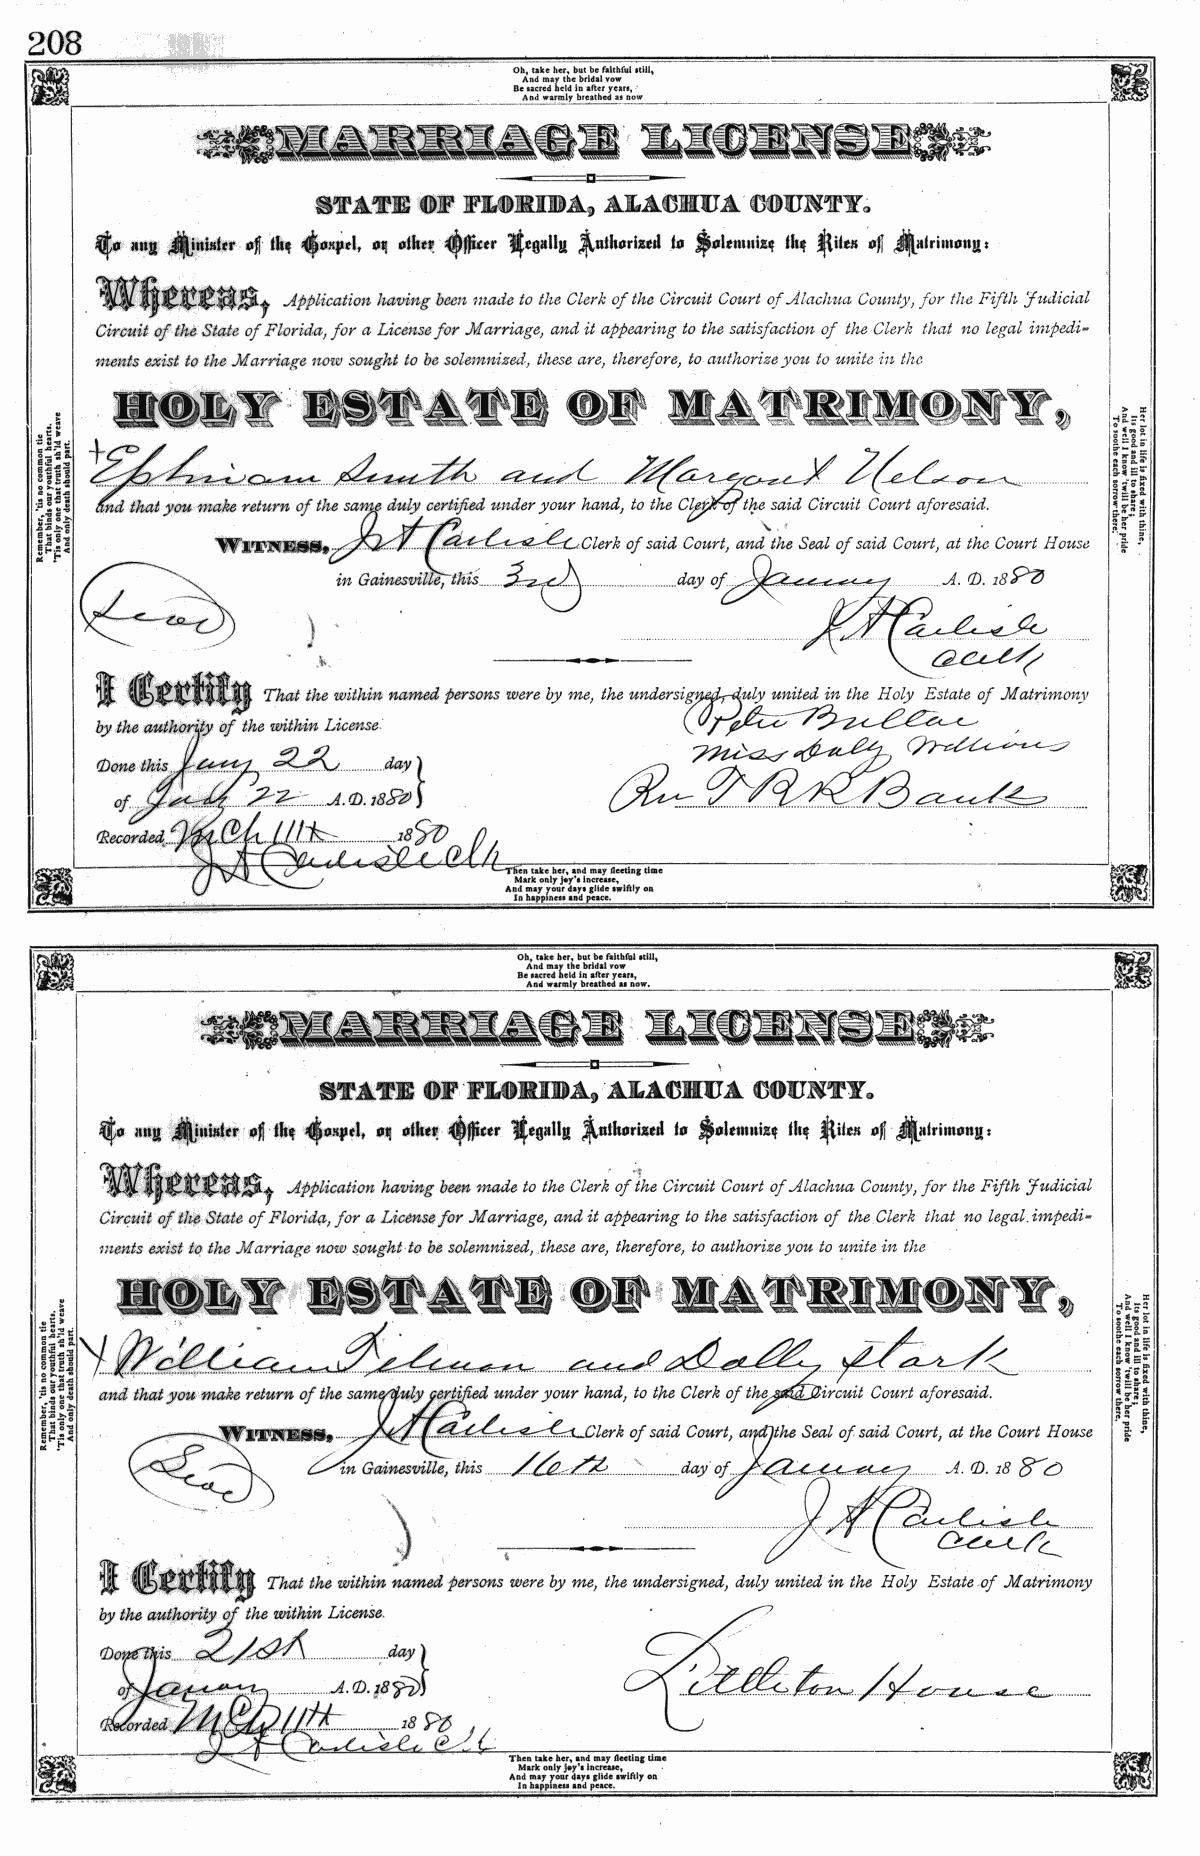 208
Oh, take her, but be faithful still,
And may the bridal vow
Be sacred held in after years,
And warmly breathed as now
MARRIAGE LICENSE
STATE OF FLORIDA, ALACHUA COUNTY.
To any Minister of the Gospel, or other Officer Legally Authorized to Solemnize the Rites of Matrimony:
Whereas, Application having been made to the Clerk of the Circuit Court of Alachua County, for the Fifth Judicial
Circuit of the State of Florida, for a License for Marriage, and it appearing to the satisfaction of the Clerk that no legal impedi-
ments exist to the Marriage now sought to be solemnized, these are, therefore, to authorize you to unite in the
HOLY ESTATE OF MATRIMONY,
Ephriam Smith and Margaret Nelson
and that you make return of the same duly certified under your hand, to the Clerk of the said Circuit Court aforesaid.
WITNESS, J A Carlisle Clerk of said Court, and the Seal of said Court, at the Court House
in Gainesville, this 3rd day of January A. D. 1880
Seal
J A Carlisle
Clerk
I Certify That the within named persons were by me, the undersigned, duly united in the Holy Estate of Matrimony
by the authority of the within License.
Peter
Miss
Done this Jany 22 day
of Jany 22 A.D. 1880
Rev T R R R Banks
Recorded Mch 11th 1880
J A Carlisle Clk
Then take her, and may fleeting time
Mark only joy's increase,
And may your days glide swiftly on
In happiness and peace.
Remember, 'tis no common tie
That binds our youthful hearts.
'Tis only one that truth sh'ld weave
And only death should part.
Her lot in life is fixed with thine,
Its good and ill to share;
And well I know 'twill be her pride
To soothe each sorrow there.
Oh, take her, but be faithful still,
And may the bridal vow
Be sacred held in after years,
And warmly breathed as now.
MARRIAGE LICENSE
STATE OF FLORIDA, ALACHUA COUNTY.
To any Minister of the Gospel, or other Officer Legally Authorized to Solemnize the Rites of Matrimony:
Whereas, Application having been made to the Clerk of the Circuit Court of Alachua County, for the Fifth Judicial
Circuit of the State of Florida, for a License for Marriage, and it appearing to the satisfaction of the Clerk that no legal impedi-
ments exist to the Marriage now sought to be solemnized, these are, therefore, to authorize you to unite in the
HOLY ESTATE OF MATRIMONY,
William Tilmon and Dolly Stark
and that you make return of the same duly certified under your hand, to the Clerk of the said Circuit Court aforesaid.
WITNESS, J A Carlisle Clerk of said Court, and the Seal of said Court, at the Court House
in Gainesville, this 16th day of January A. D. 1880
Seal
J A Carlisle
Clerk
I Certify That the within named persons were by me, the undersigned, duly united in the Holy Estate of Matrimony
by the authority of the within License.
Done this 21st day
of January A.D. 1880
Littleton House
Recorded Mch 11th 1880
J A Carlisle Clk
Then take her, and may fleeting time
Mark only joy's increase,
And may your days glide swiftly on
In happiness and peace.
Remember, 'tis no common tie
That binds our youthful hearts.
'Tis only one that truth sh'ld weave
And only death should part.
Her lot in life is fixed with thine,
Its good and ill to share;
And well I know 'twill be her pride
To soothe each sorrow there.